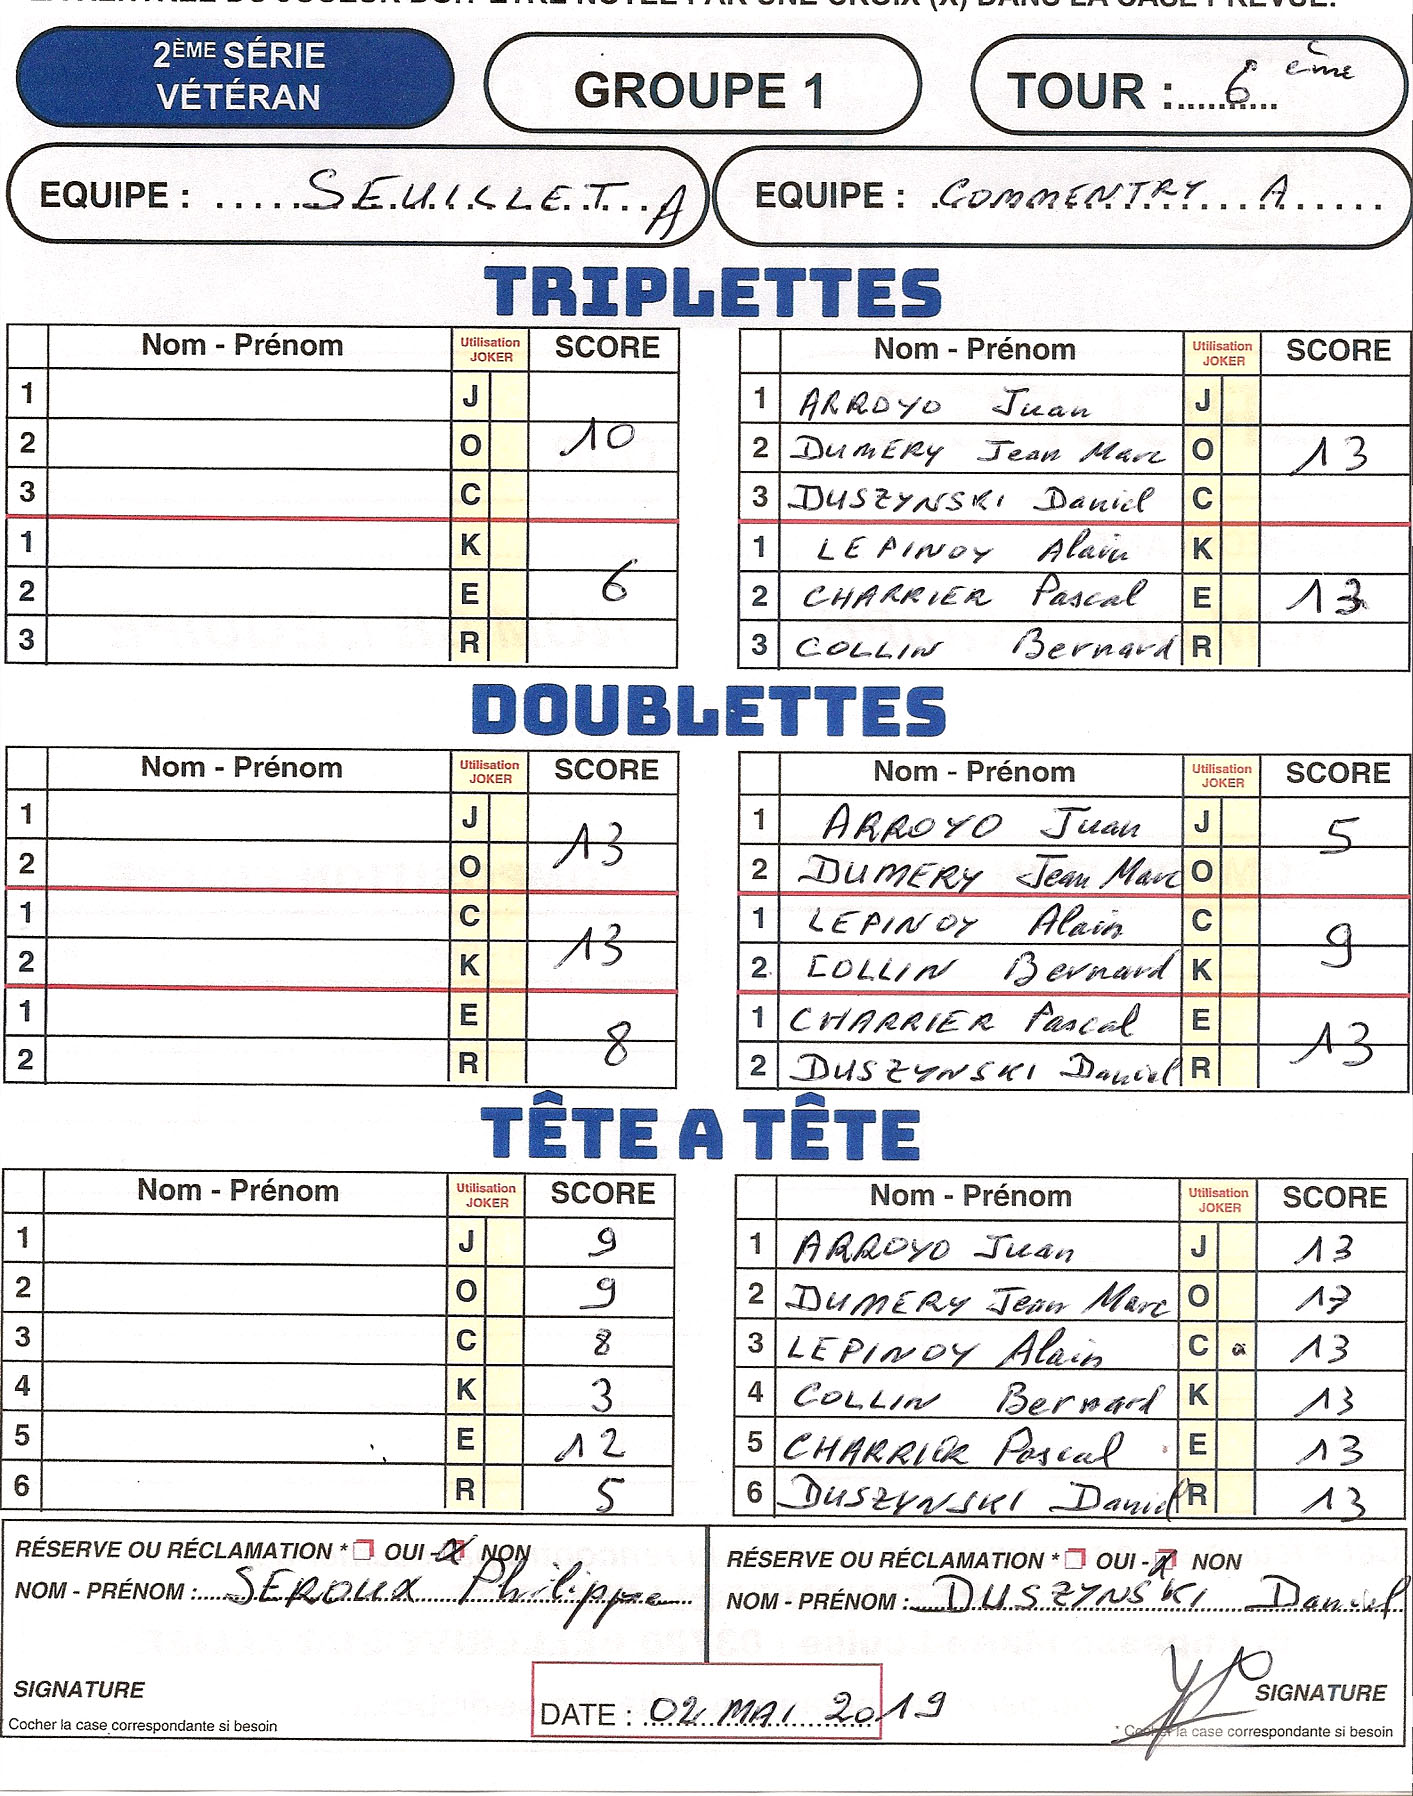 2ÈME SÉRIE
VÉTÉRAN
GROUPE 1
TOUR : 6 ème
EQUIPE : SEUILLET A
EQUIPE : COMMENTRY A
TRIPLETTES
Nom - Prénom Utilisation JOKER SCORE
1 J
2 O 10
3 C
1 K
2 E 6
3 R
Nom - Prénom Utilisation JOKER SCORE
1 ARROYO Juan J
2 DUMERY Jean Marc O 13
3 DUSZYNSKI Daniel C
1 LEPINOY Alain K
2 CHARRIER Pascal E 13
3 COLLIN Bernard R
DOUBLETTES
Nom - Prénom Utilisation JOKER SCORE
1 J 13
2 O
1 C 13
2 K
1 E 8
2 R
Nom - Prénom Utilisation JOKER SCORE
1 ARROYO Juan J 5
2 DUMERY Jean Marc O
1 LEPINOY Alain C 9
2 COLLIN Bernard K
1 CHARRIER Pascal E 13
2 DUSZYNSKI Daniel R
TÊTE A TÊTE
Nom - Prénom Utilisation JOKER SCORE
1 J 9
2 O 9
3 C 8
4 K 3
5 E 12
6 R 5
Nom - Prénom Utilisation JOKER SCORE
1 ARROYO Juan J 13
2 DUMERY Jean Marc O 13
3 LEPINOY Alain C 13
4 COLLIN Bernard K 13
5 CHARRIER Pascal E 13
6 DUSZYNSKI Daniel R 13
RÉSERVE OU RÉCLAMATION * OUI - NON
NOM - PRÉNOM : SEROUX Philippe
SIGNATURE
Cocher la case correspondante si besoin
RÉSERVE OU RÉCLAMATION * OUI - NON
NOM - PRÉNOM : DUSZYNSKI Daniel
SIGNATURE
* Cocher la case correspondante si besoin
DATE : 02 MAI 2019